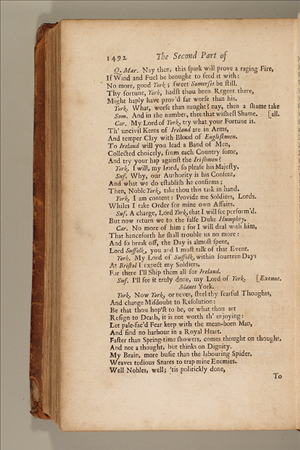 1492 The Second Part of
Q. Mar. Nay then, this spark will prove a raging Fire,
If Wind and Fuel be brought to feed it with:
No more, good York; sweet Somerset be still.
Thy fortune, York, hadst thou been Regent there,
Might haply have prov'd far worse than his.
York. What, worse than naught? nay, then a shame take
Som. And in the number, thee that wishest Shame. [all.
Car. My Lord of York, try what your Fortune is.
Th' uncivil Kerns of Ireland are in Arms,
And temper Clay with Blood of Englishmen.
To Ireland will you lead a Band of Men,
Collected choicely, from each County some,
And try your hap against the Irishmen?
York. I will, my Lord, so please his Majesty.
Suf. Why, our Authority is his Consent,
And what we do establish he confirms;
Then, Noble York, take thou this task in hand.
York. I am content: Provide me Soldiers, Lords,
Whiles I take Order for mine own Affairs.
Suf. A charge, Lord York, that I will see perform'd.
But now return we to the false Duke Humphry.
Car. No more of him; for I will deal with him,
That henceforth he shall trouble us no more:
And so break off, the Day is almost spent,
Lord Suffolk, you and I must talk of that Event.
York. My Lord of Suffolk, within fourteen Days
At Bristol I expect my Soldiers,
For there I'll Ship them all for Ireland.
Suf. I'll see it truly done, my Lord of York. [Exeunt.
Manet York.
York. Now York, or never, steel thy fearful Thoughts,
And change Misdoubt to Resolution:
Be that thou hop'st to be, or what thou art
Resign to Death, it is not worth th' enjoying:
Let pale-fac'd Fear keep with the mean-born Man,
And find no harbour in a Royal Heart.
Faster than Spring-time showers, comes thought on thought,
And not a thought, but thinks on Dignity.
My Brain, more busie than the labouring Spider,
Weaves tedious Snares to trap mine Enemies.
Well Nobles, well; 'tis politickly done,
To